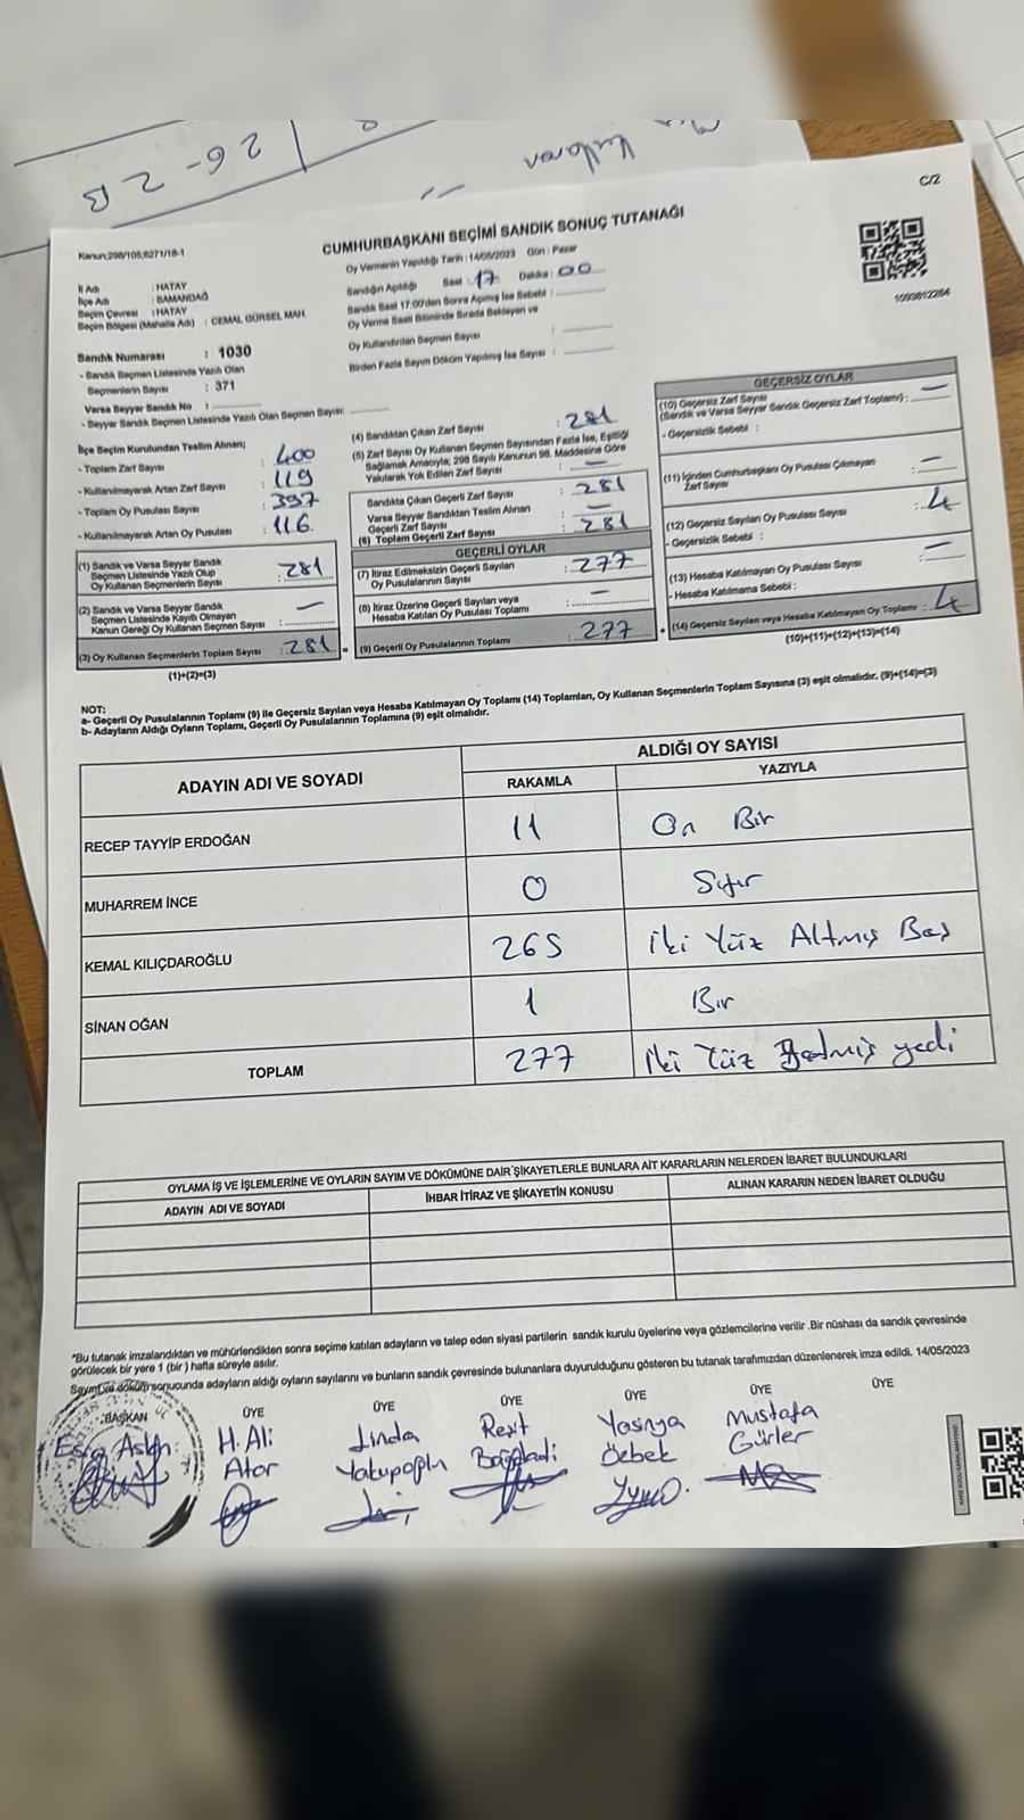 26-2B
Kullanan
C/2
CUMHURBAŞKANI SEÇİMİ SANDIK SONUÇ TUTANAĞI
Kanun:298/105,6271/18-1
Oy Vermenin Yapıldığı Tarih : 14/05/2023 Gün : Pazar
Sandığın Açıldığı Saat : 17 Dakika : 00
Sandık Saat 17:00'den Sonra Açılmış İse Sebebi :
Oy Verme Saati Bitiminde Sırada Bekleyen ve
Oy Kullandırılan Seçmen Sayısı :
Birden Fazla Sayım Döküm Yapılmış İse Sayısı :
İl Adı : HATAY
İlçe Adı : SAMANDAĞ
Seçim Çevresi : HATAY
Seçim Bölgesi (Mahalle Adı) : CEMAL GÜRSEL MAH.
Sandık Numarası : 1030
- Sandık Seçmen Listesinde Yazılı Olan
Seçmenlerin Sayısı : 371
Varsa Seyyar Sandık No :
- Seyyar Sandık Seçmen Listesinde Yazılı Olan Seçmen Sayısı:
İlçe Seçim Kurulundan Teslim Alınan;
- Toplam Zarf Sayısı : 400
- Kullanılmayarak Artan Zarf Sayısı : 119
- Toplam Oy Pusulası Sayısı : 397
- Kullanılmayarak Artan Oy Pusulası : 116
(1) Sandık ve Varsa Seyyar Sandık
Seçmen Listesinde Yazılı Olup
Oy Kullanan Seçmenlerin Sayısı : 281
(2) Sandık ve Varsa Seyyar Sandık
Seçmen Listesinde Kayıtlı Olmayan
Kanun Gereği Oy Kullanan Seçmen Sayısı : —
(3) Oy Kullanan Seçmenlerin Toplam Sayısı : 281
(1)+(2)=(3)
(4) Sandıktan Çıkan Zarf Sayısı : 281
(5) Zarf Sayısı Oy Kullanan Seçmen Sayısından Fazla İse, Eşitliği
Sağlamak Amacıyla, 298 Sayılı Kanunun 98. Maddesine Göre
Yakılarak Yok Edilen Zarf Sayısı : —
Sandıkta Çıkan Geçerli Zarf Sayısı : 281
Varsa Seyyar Sandıktan Teslim Alınan
Geçerli Zarf Sayısı : —
(6) Toplam Geçerli Zarf Sayısı : 281
GEÇERLİ OYLAR
(7) İtiraz Edilmeksizin Geçerli Sayılan
Oy Pusulalarının Sayısı : 277
(8) İtiraz Üzerine Geçerli Sayılan veya
Hesaba Katılan Oy Pusulası Toplamı : —
= (9) Geçerli Oy Pusulalarının Toplamı 277
GEÇERSİZ OYLAR
(10) Geçersiz Zarf Sayısı
(Sandık ve Varsa Seyyar Sandık Geçersiz Zarf Toplamı) : —
- Geçersizlik Sebebi :
(11) İçinden Cumhurbaşkanı Oy Pusulası Çıkmayan
Zarf Sayısı : —
(12) Geçersiz Sayılan Oy Pusulası Sayısı : 4
- Geçersizlik Sebebi :
(13) Hesaba Katılmayan Oy Pusulası Sayısı : —
- Hesaba Katılmama Sebebi :
+ (14) Geçersiz Sayılan veya Hesaba Katılmayan Oy Toplamı : 4
(10)+(11)+(12)+(13)=(14)
NOT:
a- Geçerli Oy Pusulalarının Toplamı (9) ile Geçersiz Sayılan veya Hesaba Katılmayan Oy Toplamı (14) Toplamları, Oy Kullanan Seçmenlerin Toplam Sayısına (3) eşit olmalıdır. (9)+(14)=(3)
b- Adayların Aldığı Oyların Toplamı, Geçerli Oy Pusulalarının Toplamına (9) eşit olmalıdır.
ADAYIN ADI VE SOYADI ALDIĞI OY SAYISI
RAKAMLA YAZIYLA
RECEP TAYYİP ERDOĞAN 11 On Bir
MUHARREM İNCE 0 Sıfır
KEMAL KILIÇDAROĞLU 265 İki Yüz Altmış Beş
SİNAN OĞAN 1 Bir
TOPLAM 277 İki Yüz Yetmiş yedi
OYLAMA İŞ VE İŞLEMLERİNE VE OYLARIN SAYIM VE DÖKÜMÜNE DAİR ŞİKAYETLERLE BUNLARA AİT KARARLARIN NELERDEN İBARET BULUNDUKLARI
ADAYIN ADI VE SOYADI İHBAR İTİRAZ VE ŞİKAYETİN KONUSU ALINAN KARARIN NEDEN İBARET OLDUĞU
*Bu tutanak imzalandıktan ve mühürlendikten sonra seçime katılan adayların ve talep eden siyasi partilerin sandık kurulu üyelerine veya gözlemcilerine verilir .Bir nüshası da sandık çevresinde
görülecek bir yere 1 (bir ) hafta süreyle asılır.
Sayım ve döküm sonucunda adayların aldığı oyların sayılarını ve bunların sandık çevresinde bulunanlara duyurulduğunu gösteren bu tutanak tarafımızdan düzenlenerek imza edildi. 14/05/2023
BAŞKAN ÜYE ÜYE ÜYE ÜYE ÜYE ÜYE
Esra Aslan H. Ali Linda Reşit Yasinya Mustafa
Ator Yakupoğlu Özbek Gürler